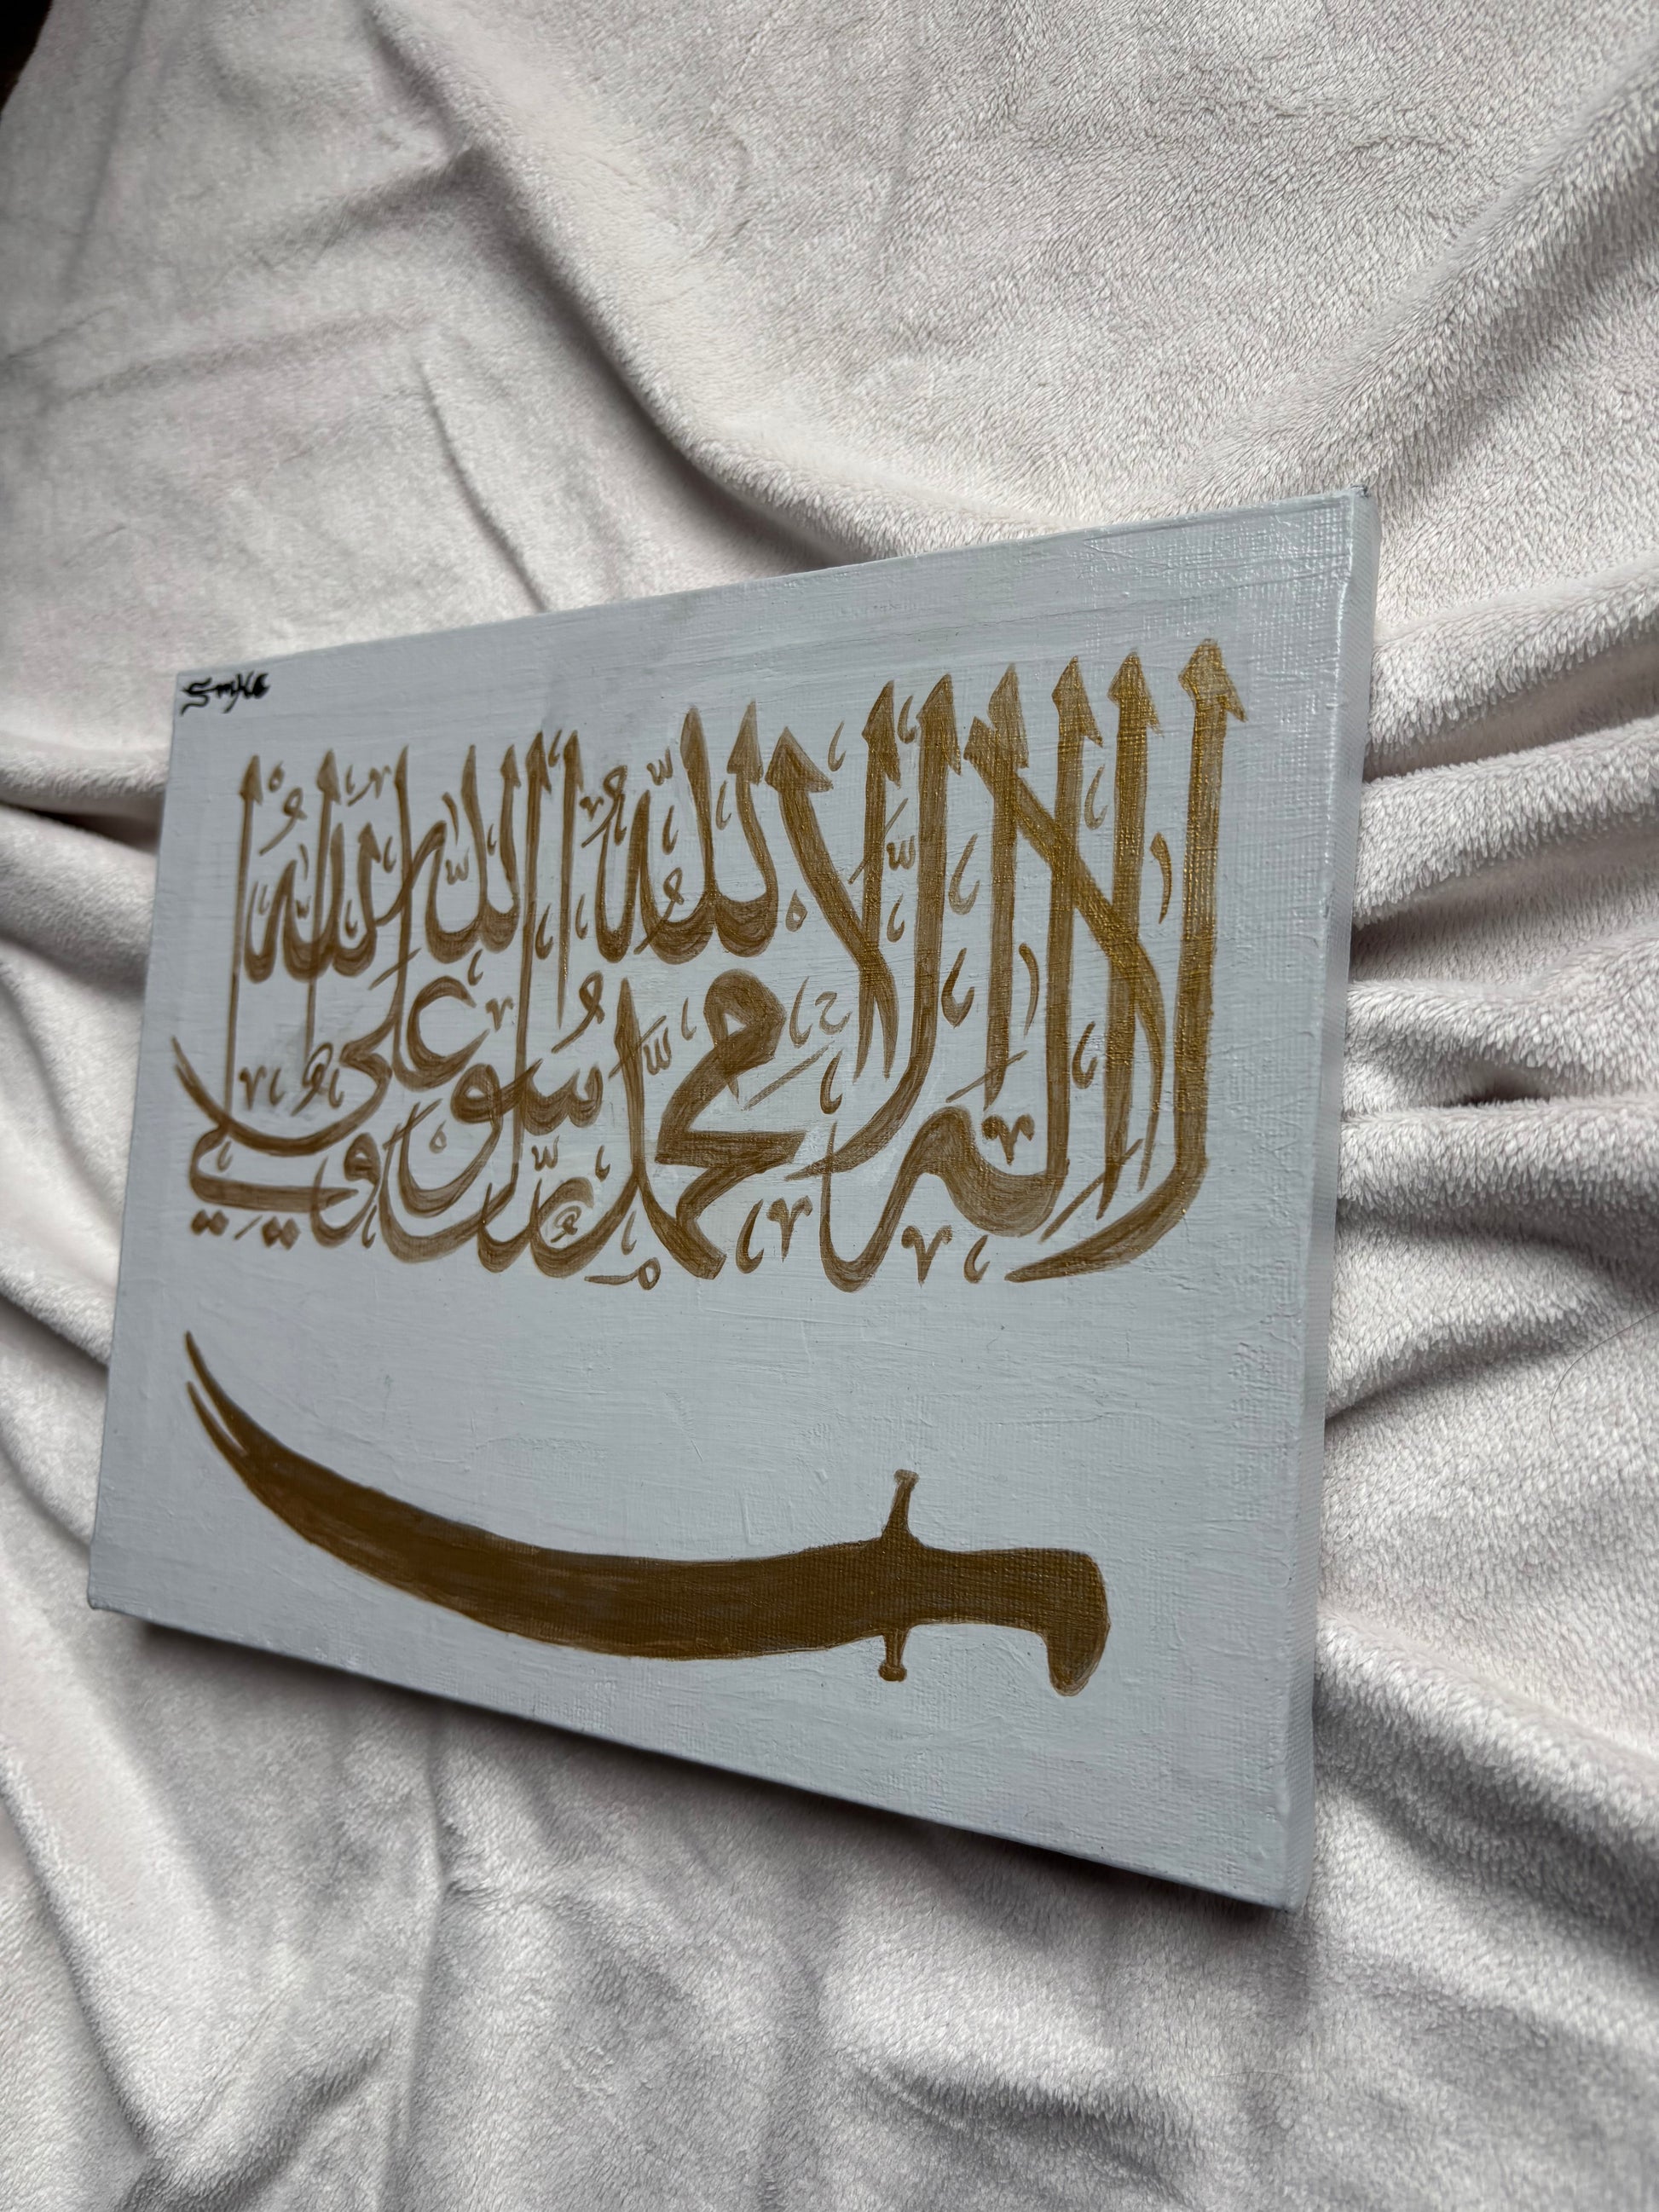 Smke
لا إله إلا الله محمد رسول الله علي ولي الله